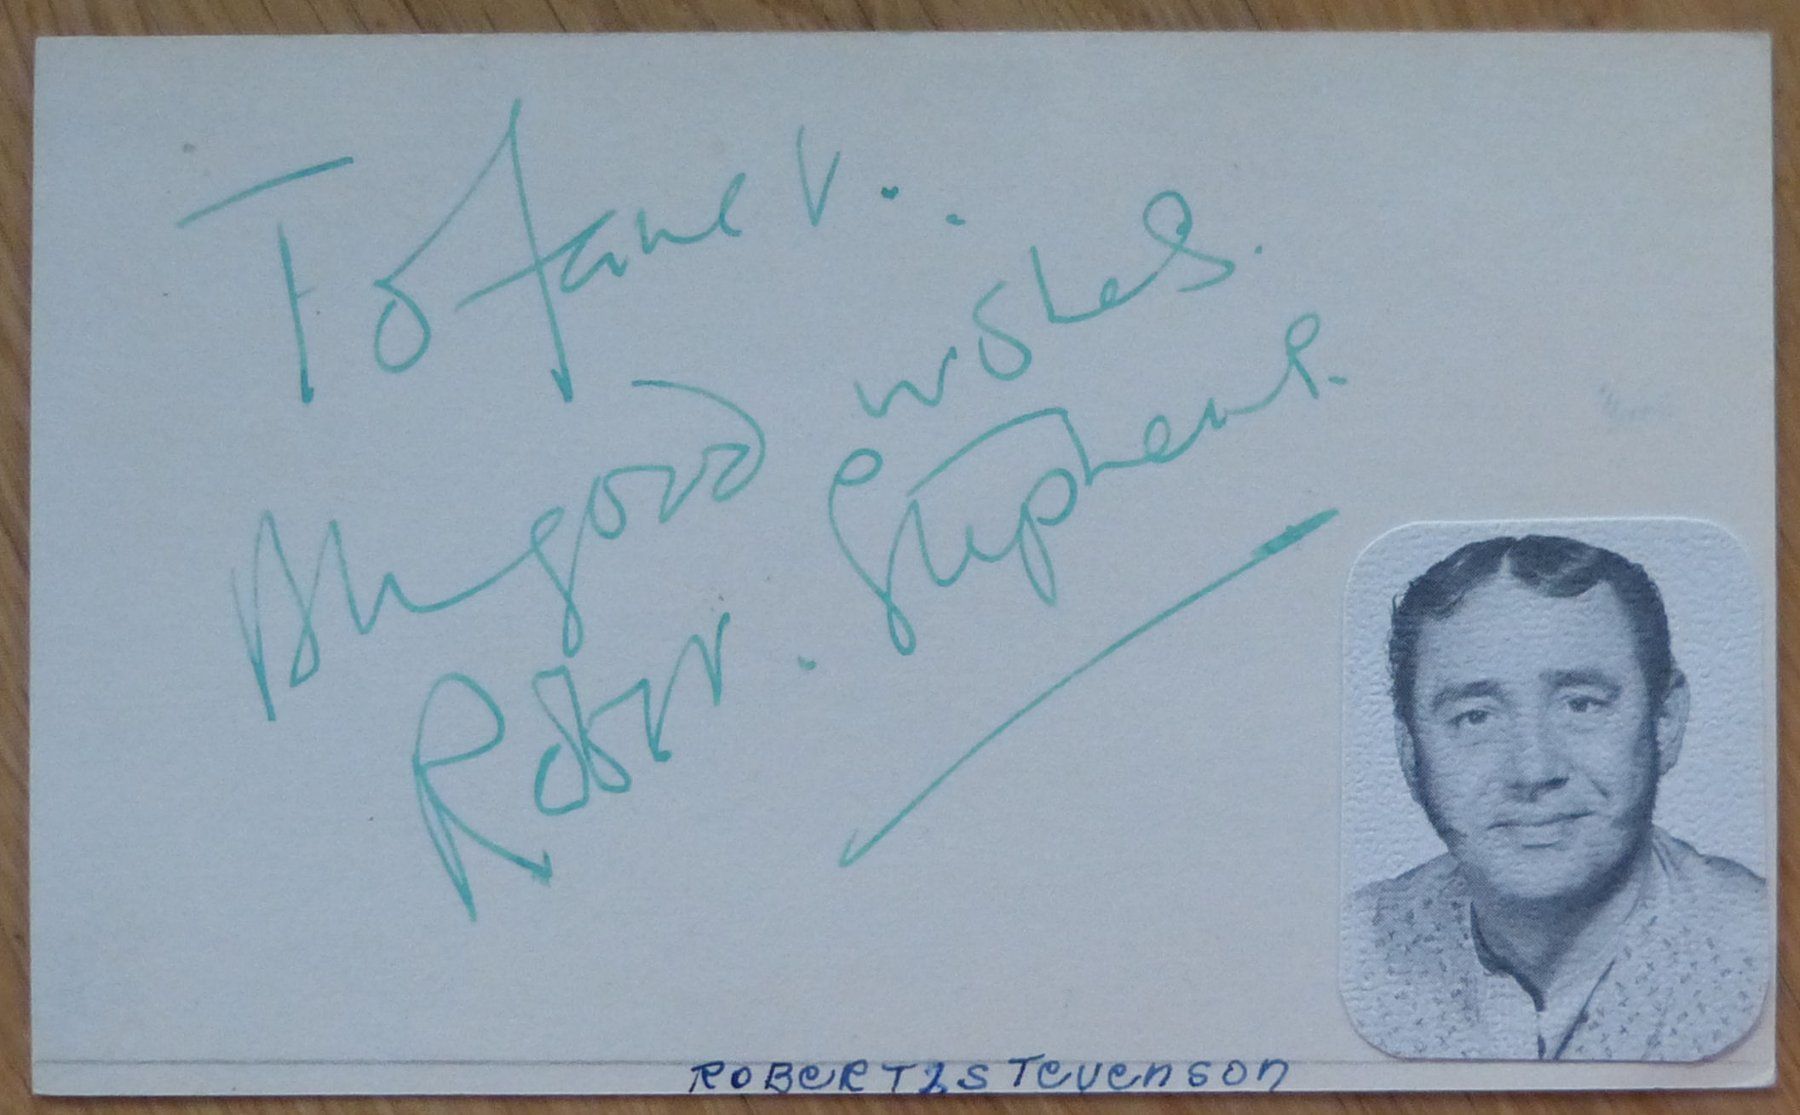 To Janet..
All good wishes.
Robert. Stephens.
ROBERT STEVENSON